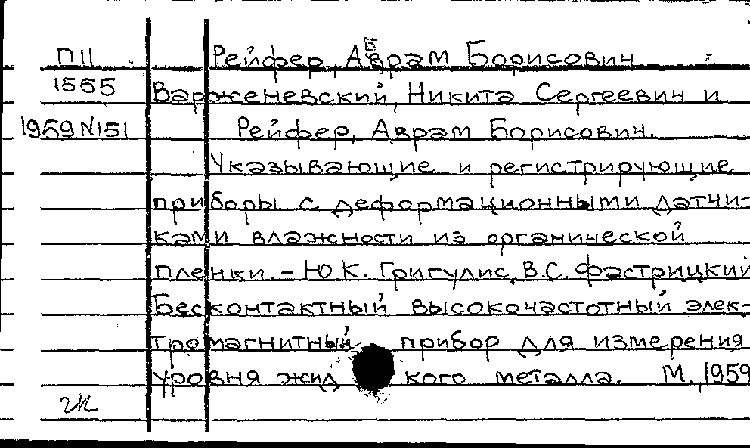 П11 Рейфер, Аврам Борисович
1555 Варженевский, Никита Сергеевич и
1959 N151 Рейфер, Аврам Борисович.
Указывающие и регистрирующие
приборы с деформационными датчи-
ками влажности из органической
пленки. – Ю.К. Григулис, В.С. Фастрицкий
Бесконтактный высокочастотный элек-
тромагнитный прибор для измерения
уровня жидкого металла. М., 1959